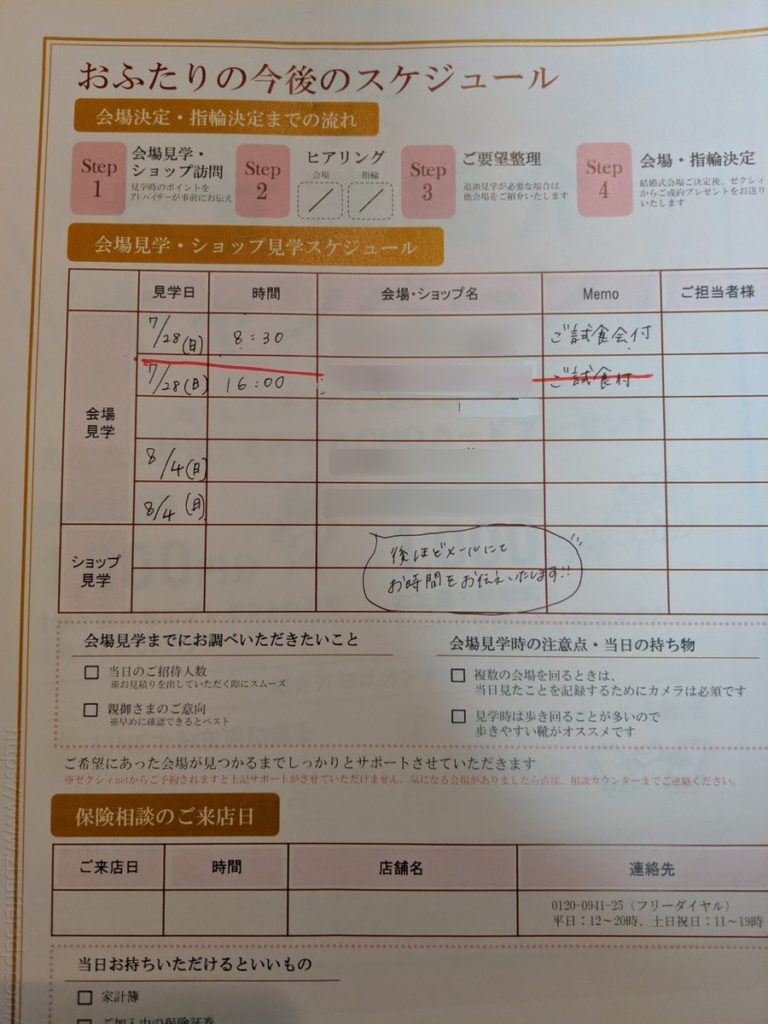 おふたりの今後のスケジュール
会場決定・指輪決定までの流れ
Step 1
会場見学・
ショップ訪問
見学時のポイントを
アドバイザーが事前にお伝え
Step 2
ヒアリング
会場 指輪
Step 3
ご要望整理
追加見学が必要な場合は
他会場をご紹介いたします
Step 4
会場・指輪決定
結婚式会場ご決定後、ゼクシィ
からご成約プレゼントをお送り
いたします
会場見学・ショップ見学スケジュール
見学日 時間 会場・ショップ名 Memo ご担当者様
会場
見学
7/28(日) 8:30 ご試食会付
7/28(日) 16:00 ご試食付
8/4(日)
8/4(日)
ショップ
見学
後ほどメールにて
お時間をお伝えいたします!!
会場見学までにお調べいただきたいこと
当日のご招待人数
※お見積りを出していただく際にスムーズ
親御さまのご意向
※早めに確認できるとベスト
会場見学時の注意点・当日の持ち物
複数の会場を回るときは、
当日見たことを記録するためにカメラは必須です
見学時は歩き回ることが多いので
歩きやすい靴がオススメです
ご希望にあった会場が見つかるまでしっかりとサポートさせていただきます
※ゼクシィnetからご予約されますと上記サポートがさせていただけません。気になる会場がありましたら直接、相談カウンターまでご連絡ください。
保険相談のご来店日
ご来店日 時間 店舗名 連絡先
0120-0941-25（フリーダイヤル）
平日：12～20時、土日祝日：11～19時
当日お持ちいただけるといいもの
家計簿
ご加入中の保険証券